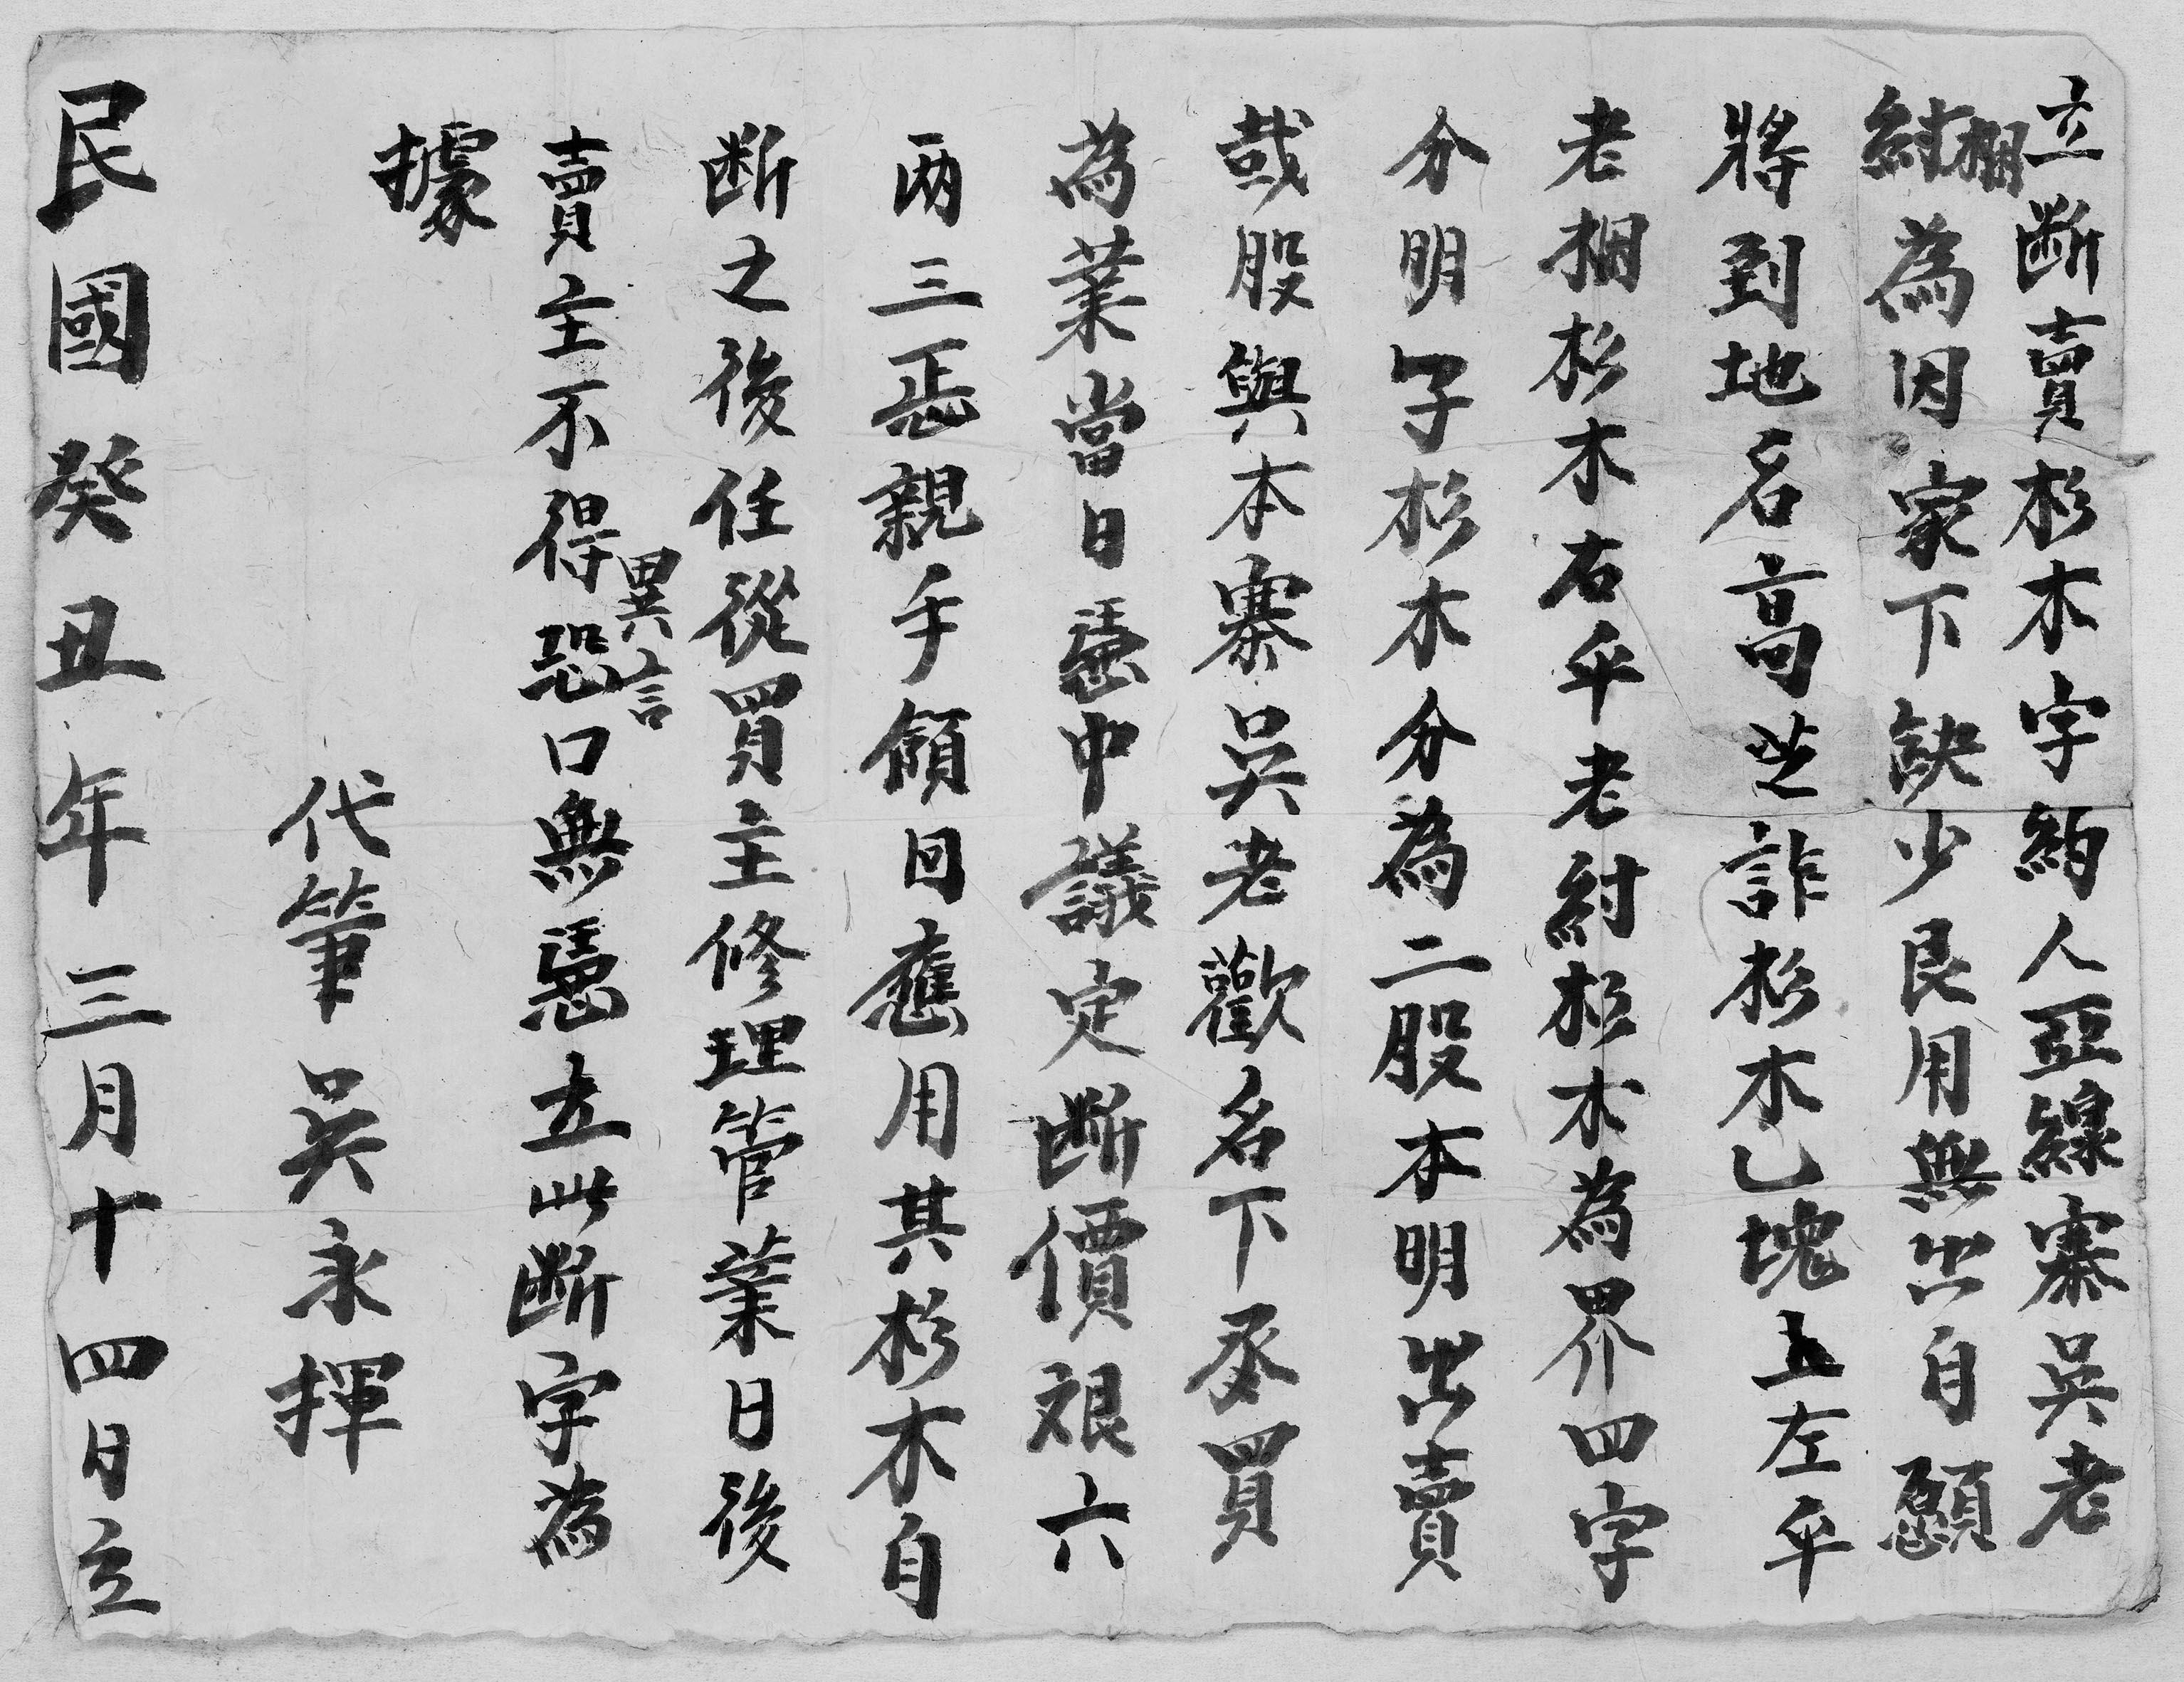 立断賣杉木字約人亞線寨吳老
棚
紂為因家下缺少艮用無出自愿
將到地名高芝詐杉木乙塊上左平
老捆杉木右平老紂杉木為界四字
分明字杉木分為二股本明出賣
或股與本寨吳老歡名下承買
為業當日憑中議定断價銀六
两三正親手領回應用其杉木自
断之後任從買主修理管業日後
異言
賣主不得恐口無憑立此断字為
據
代筆吳永揮
民國癸丑年三月十四日立